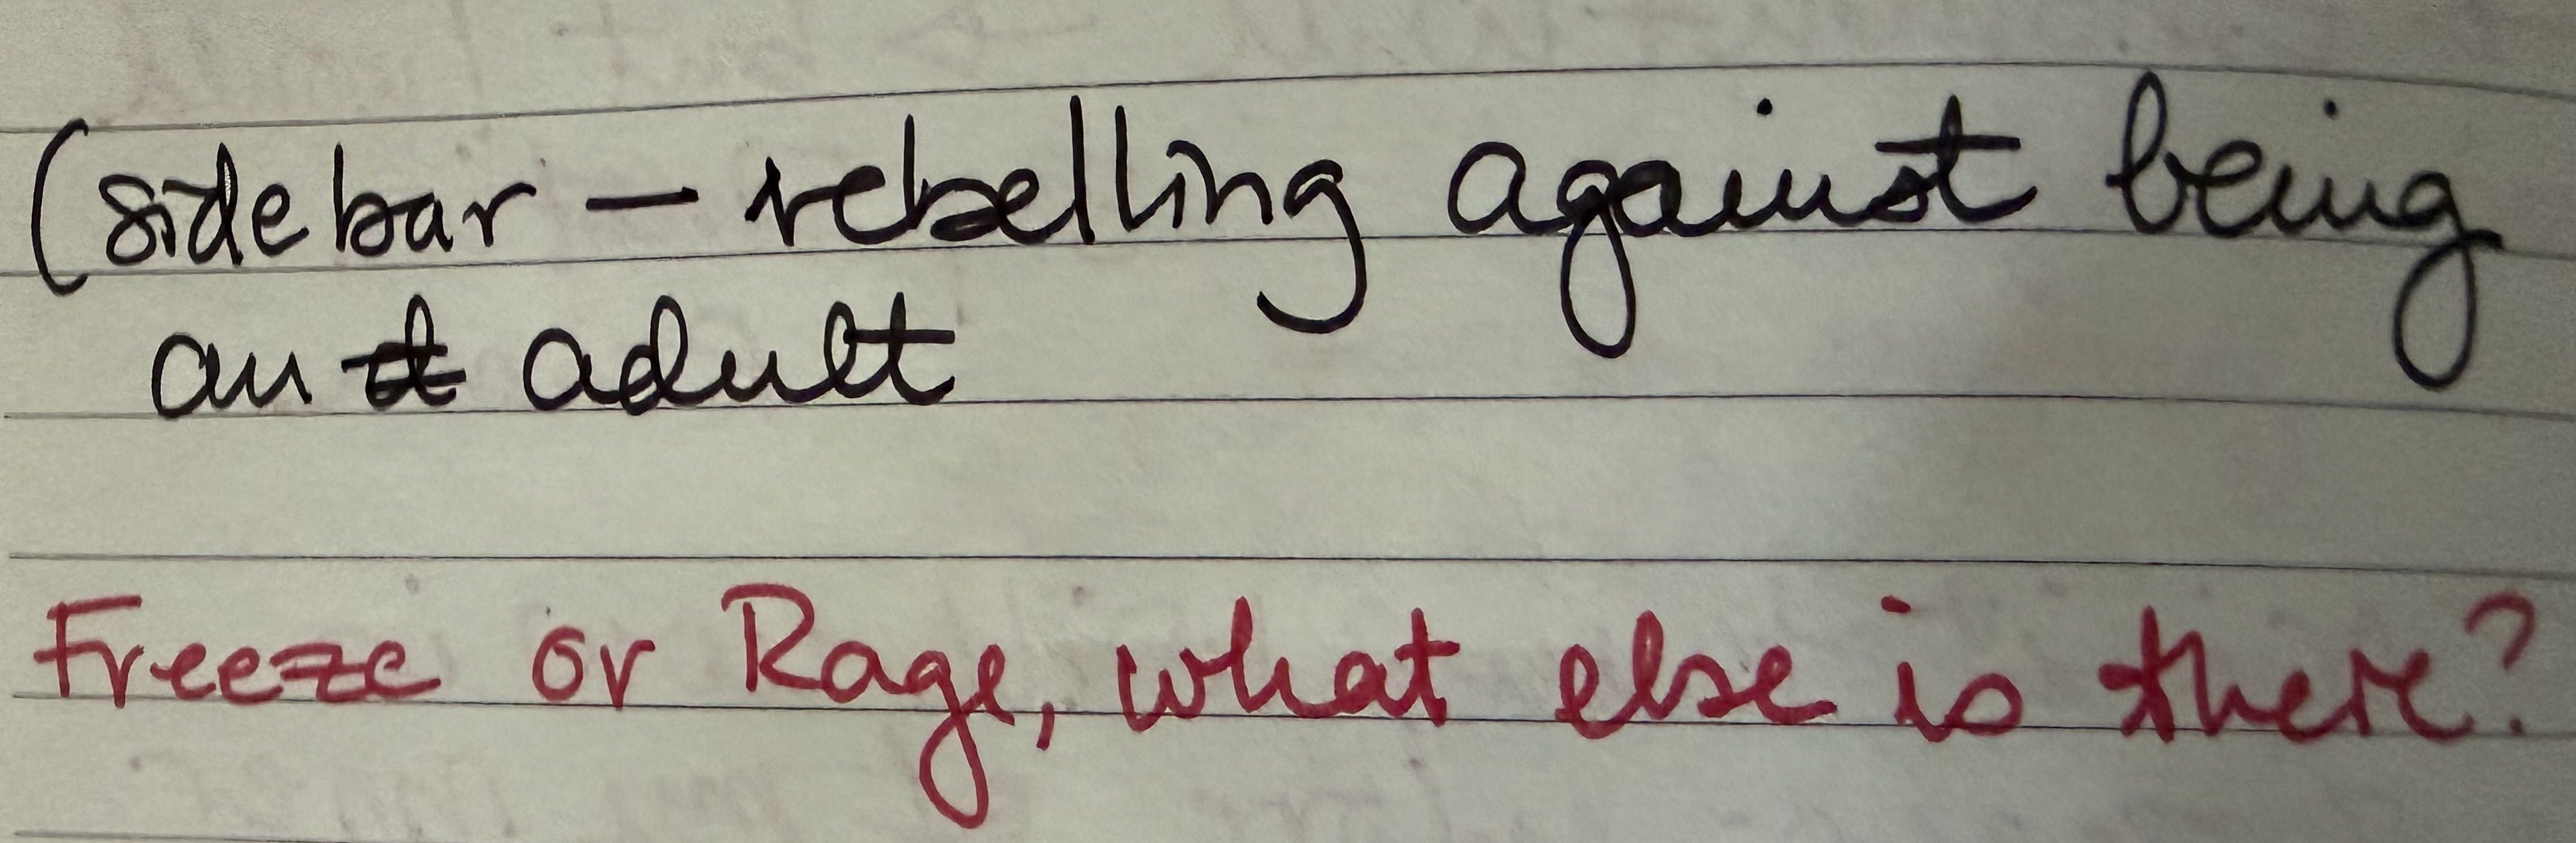 (sidebar – rebelling against being
an adult
Freeze or Rage, what else is there?